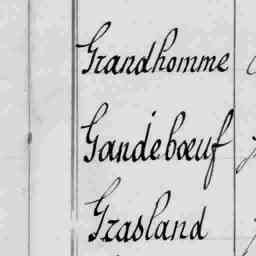 Grandhomme
Gandebœuf
Grasland